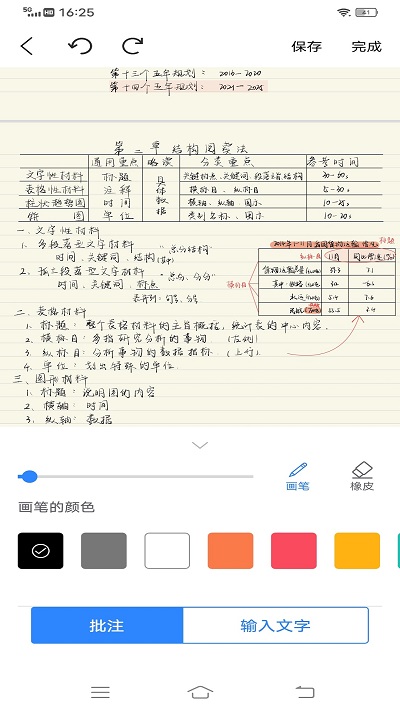 5G HD 16:25 41
保存 完成
第十三个五年规划: 2016-2020
第十四个五年规划: 2021-2025
第二章 结构阅读法
通用重点 略读 分类重点 参考时间
文字性材料 标题 具体数据 关键词、段落主旨结构 30-60s
表格性材料 注释 横标目、纵标目 5-30s
柱状趋势图 时间 横轴、纵轴、图示 10-25s
饼图 单位 类别名称、图示 10-20s
一、文字性材料
1、多段落型文字材料 总分结构
时间、关键词、结构
时间、关键词、标点
二、表格材料
1、标题: 整个表格材料的主旨概括, 统计表的中心内容.
2、横标目: 多指研究分析的事物. (左侧)
3、纵标目: 分析事物的数据指标. (上方)
4、单位: 划出特殊的单位.
三、图形材料
1、标题: 说明图的内容
2、横轴: 时间
3、纵轴: 数据
标题
纵标目
横标目
画笔 橡皮
画笔的颜色
批注 输入文字